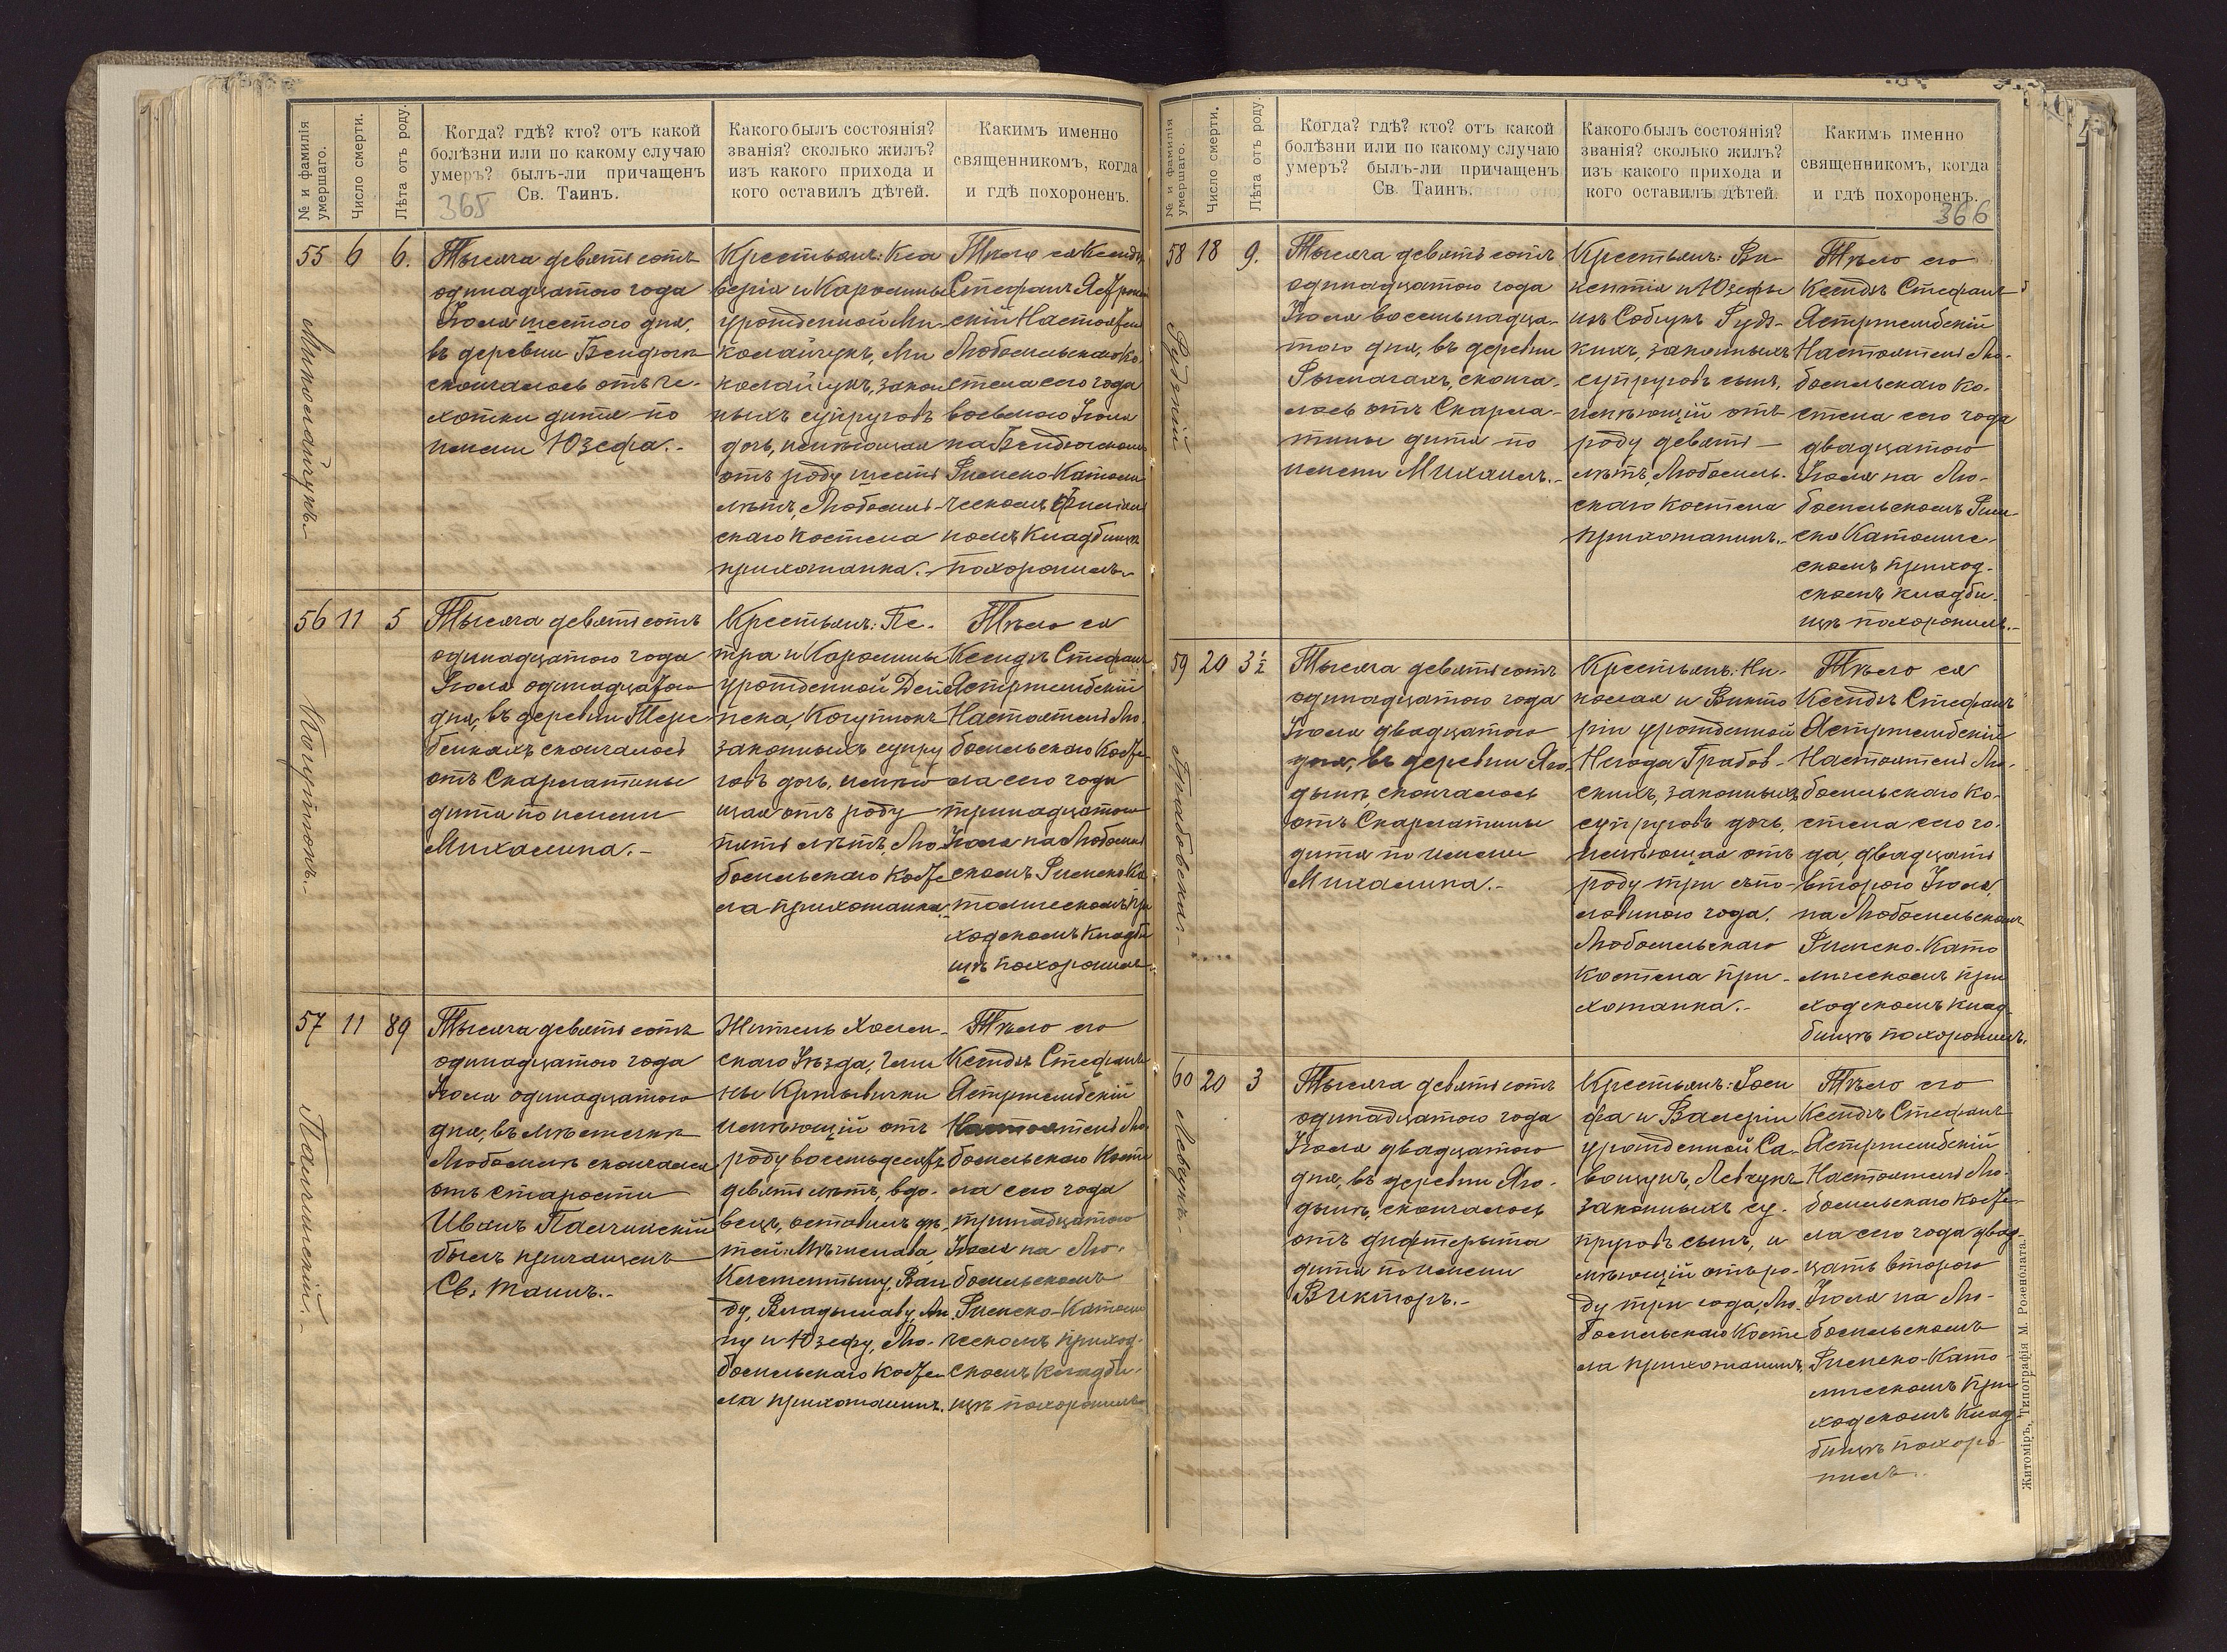 № и фамилія умершаго.
Число смерти.
Лѣта отъ роду.
Когда? гдѣ? кто? отъ какой
болѣзни или по какому случаю
умеръ? былъ-ли причащенъ
Св. Таинъ.
Какого былъ состоянія?
званія? сколько жилъ?
изъ какого прихода и
кого оставилъ дѣтей.
Какимъ именно
священникомъ, когда
и гдѣ похороненъ.
365
55
6
6.
Миколайчукъ.
Тысяча девятьсотъ
одинадцатого года
Іюля шестого дня,
въ деревни
скончалось отъ че-
хотки дитя по
имени Юзефа.-
Крестьянъ: Кса
верія и Каролины
урожденной Ми-
колайчукъ, Ми
колайчукъ, закон
ныхъ супруговъ
дочь, имѣющая
отъ роду шесть
лѣтъ, Любомль-
скаго костела
прихожанка.-
Тѣло ея Ксендзъ
Стефанъ
скій Настоятель
Любомльскаго Ко-
стела сего года
восьмого Іюля
на
Римско-Католи
ческомъ
номъ Кладбищѣ
похоронилъ
56
11
5
Когутюкъ.-
Тысяча девятьсотъ
одинадцатого года
Іюля одинадцатого
дня, въ деревни Тере-
бейкахъ скончалось
отъ Скарлатины
дитя по имени
Михалина.-
Крестьянъ: Пе-
тра и Каролины
урожденной Дей
нека, Когутюкъ
законныхъ супру
говъ дочь, имѣю
щая отъ роду
пять лѣтъ, Лю-
бомльскаго косте
ла прихожанка.-
Тѣло ея
Ксендзъ Стефанъ
Ястржембскій
Настоятель Лю-
бомльскаго Косте-
ла сего года
тринадцатого
Іюля на Любомль
скомъ Римско Ка
толическомъ при
ходскомъ Кладби
щѣ похоронилъ
57
11
89
Палчинскій.-
Тысяча девятьсотъ
одинадцатого года
Іюля одинадцатого
дня, въ мѣстечкѣ
Любомлѣ скончался
отъ старости
Иванъ Палчинскій
былъ причащенъ
Св. Таинъ.-
Житель Холм-
скаго Уѣзда, Гми
ны Кривовички
имѣющій отъ
роду восемьдесятъ
девять лѣтъ, вдо-
вецъ, оставилъ дѣ-
тей: Мѣчислава,
Клементину, Ван
ду, Владыславу, Ан
ну и Юзефу, Лю-
бомльскаго косте
ла прихожанинъ.
Тѣло его
Ксендзъ Стефанъ
Ястржембскій
Настоятель Лю
бомльскаго Косте
ла сего года
тринадцатого
Іюля на Лю-
бомльскомъ
Римско-Католи
ческомъ приход-
скомъ кладби-
щѣ похоронилъ
№ и фамилія умершаго.
Число смерти.
Лѣта отъ роду.
Когда? гдѣ? кто? отъ какой
болѣзни или по какому случаю
умеръ? былъ-ли причащенъ
Св. Таинъ.
Какого былъ состоянія?
званія? сколько жилъ?
изъ какого прихода и
кого оставилъ дѣтей.
Какимъ именно
священникомъ, когда
и гдѣ похороненъ.
366
58
18
9.
Рудскій
Тысяча девятьсотъ
одинадцатого года
Іюля восемьнадца-
того дня, въ деревни
Рымачахъ, сконча-
лось отъ Скарла-
тины дитя по
имени Михаилъ.-
Крестьянъ: Ви-
кентія и Юзефы
изъ
кихъ, законныхъ
супруговъ сынъ,
имѣющій отъ
роду девять
лѣтъ, Любомль-
скаго костела
прихожанинъ.-
Тѣло его
Ксендзъ Стефанъ
Ястржембскій
Настоятель Лю-
бомльскаго Ко-
стела сего года
двадцатого
Іюля на Лю-
бомльскомъ Рим-
ско Католиче-
скомъ приход-
скомъ кладби-
щѣ похоронилъ.-
59
20
3½
Грабовская.-
Тысяча девятьсотъ
одинадцатого года
Іюля двадцатого
дня, въ деревни Яго-
дынѣ, скончалось
отъ Скарлатины
дитя по имени
Михалина.-
Крестьянъ: Ни-
колая и Викто
ріи урожденной
Негода Грабов-
скихъ, законныхъ
супруговъ дочь,
имѣющая отъ
роду три съпо-
ловиною года,
Любомльскаго
костела при-
хожанка.-
Тѣло ея
Ксендзъ Стефанъ
Ястржембскій
Настоятель Лю-
бомльскаго Ко-
стела сего го-
да, двадцать
второго Іюля,
на Любомльскомъ
Римско-Като
лическомъ при
ходскомъ клад
бищѣ похоронилъ.
60
20
3
Левчукъ.-
Тысяча девятьсотъ
одинадцатого года
Іюля двадцатого
дня, въ деревни Яго-
дынѣ, скончалось
отъ дифтерыта
дитя по имени
Викторъ.-
Крестьянъ: Іоси
фа и Валеріи
урожденной Са-
вощукъ, Левчукъ
законныхъ су-
пруговъ сынъ, и
мѣющій отъ ро-
ду три года, Лю-
бомльскаго Косте
ла прихожанинъ.
Тѣло его
Ксендзъ Стефанъ
Ястржембскій
Настоятель Лю-
бомльскаго Косте-
ла сего года двад-
цать второго
Іюля на Лю-
бомльскомъ
Римско-Като-
лическомъ при
ходскомъ Клад
бищѣ похоро
нилъ.
Житоміръ, Типографія М. Розенблата.